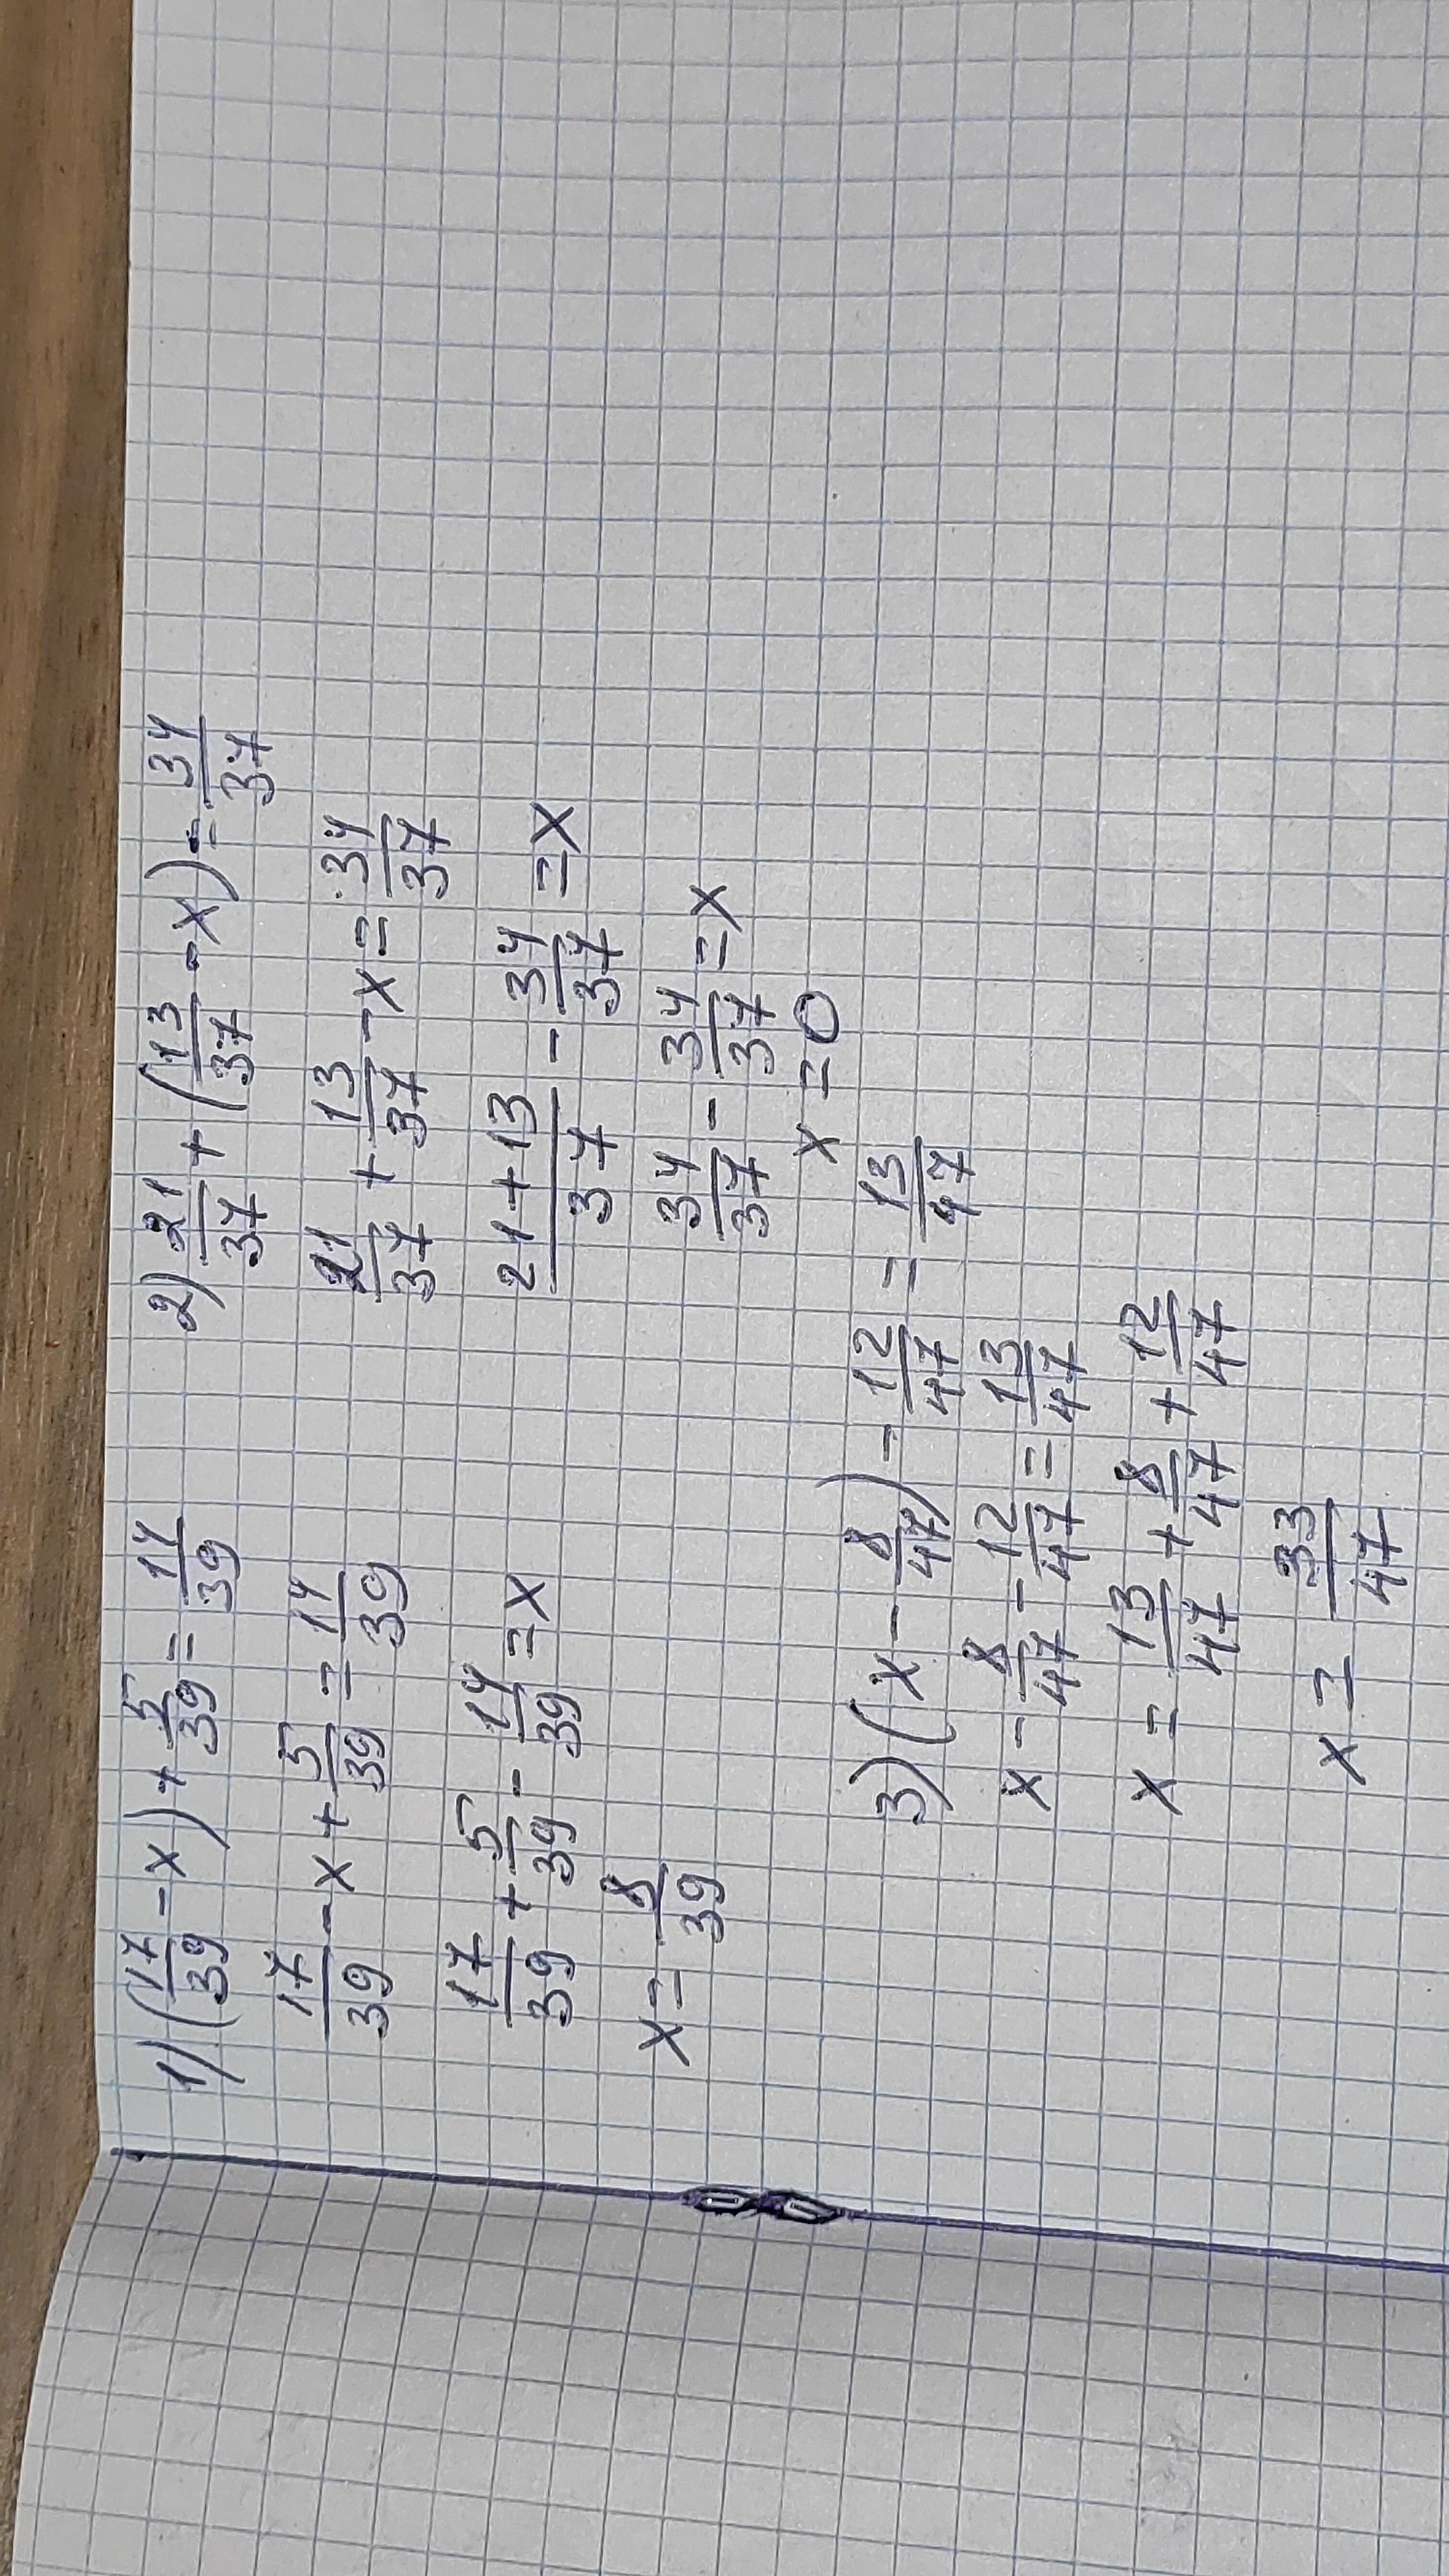 1) (17/39 - x) + 5/39 = 14/39
17/39 - x + 5/39 = 14/39
17/39 + 5/39 - 14/39 = x
x = 8/39
2) 21/37 + (13/37 - x) = 34/37
21/37 + 13/37 - x = 34/37
21 + 13/37 - 34/37 = x
34/37 - 34/37 = x
x = 0
3) (x - 8/47) - 12/47 = 13/47
x - 8/47 - 12/47 = 13/47
x = 13/47 + 8/47 + 12/47
x = 33/47